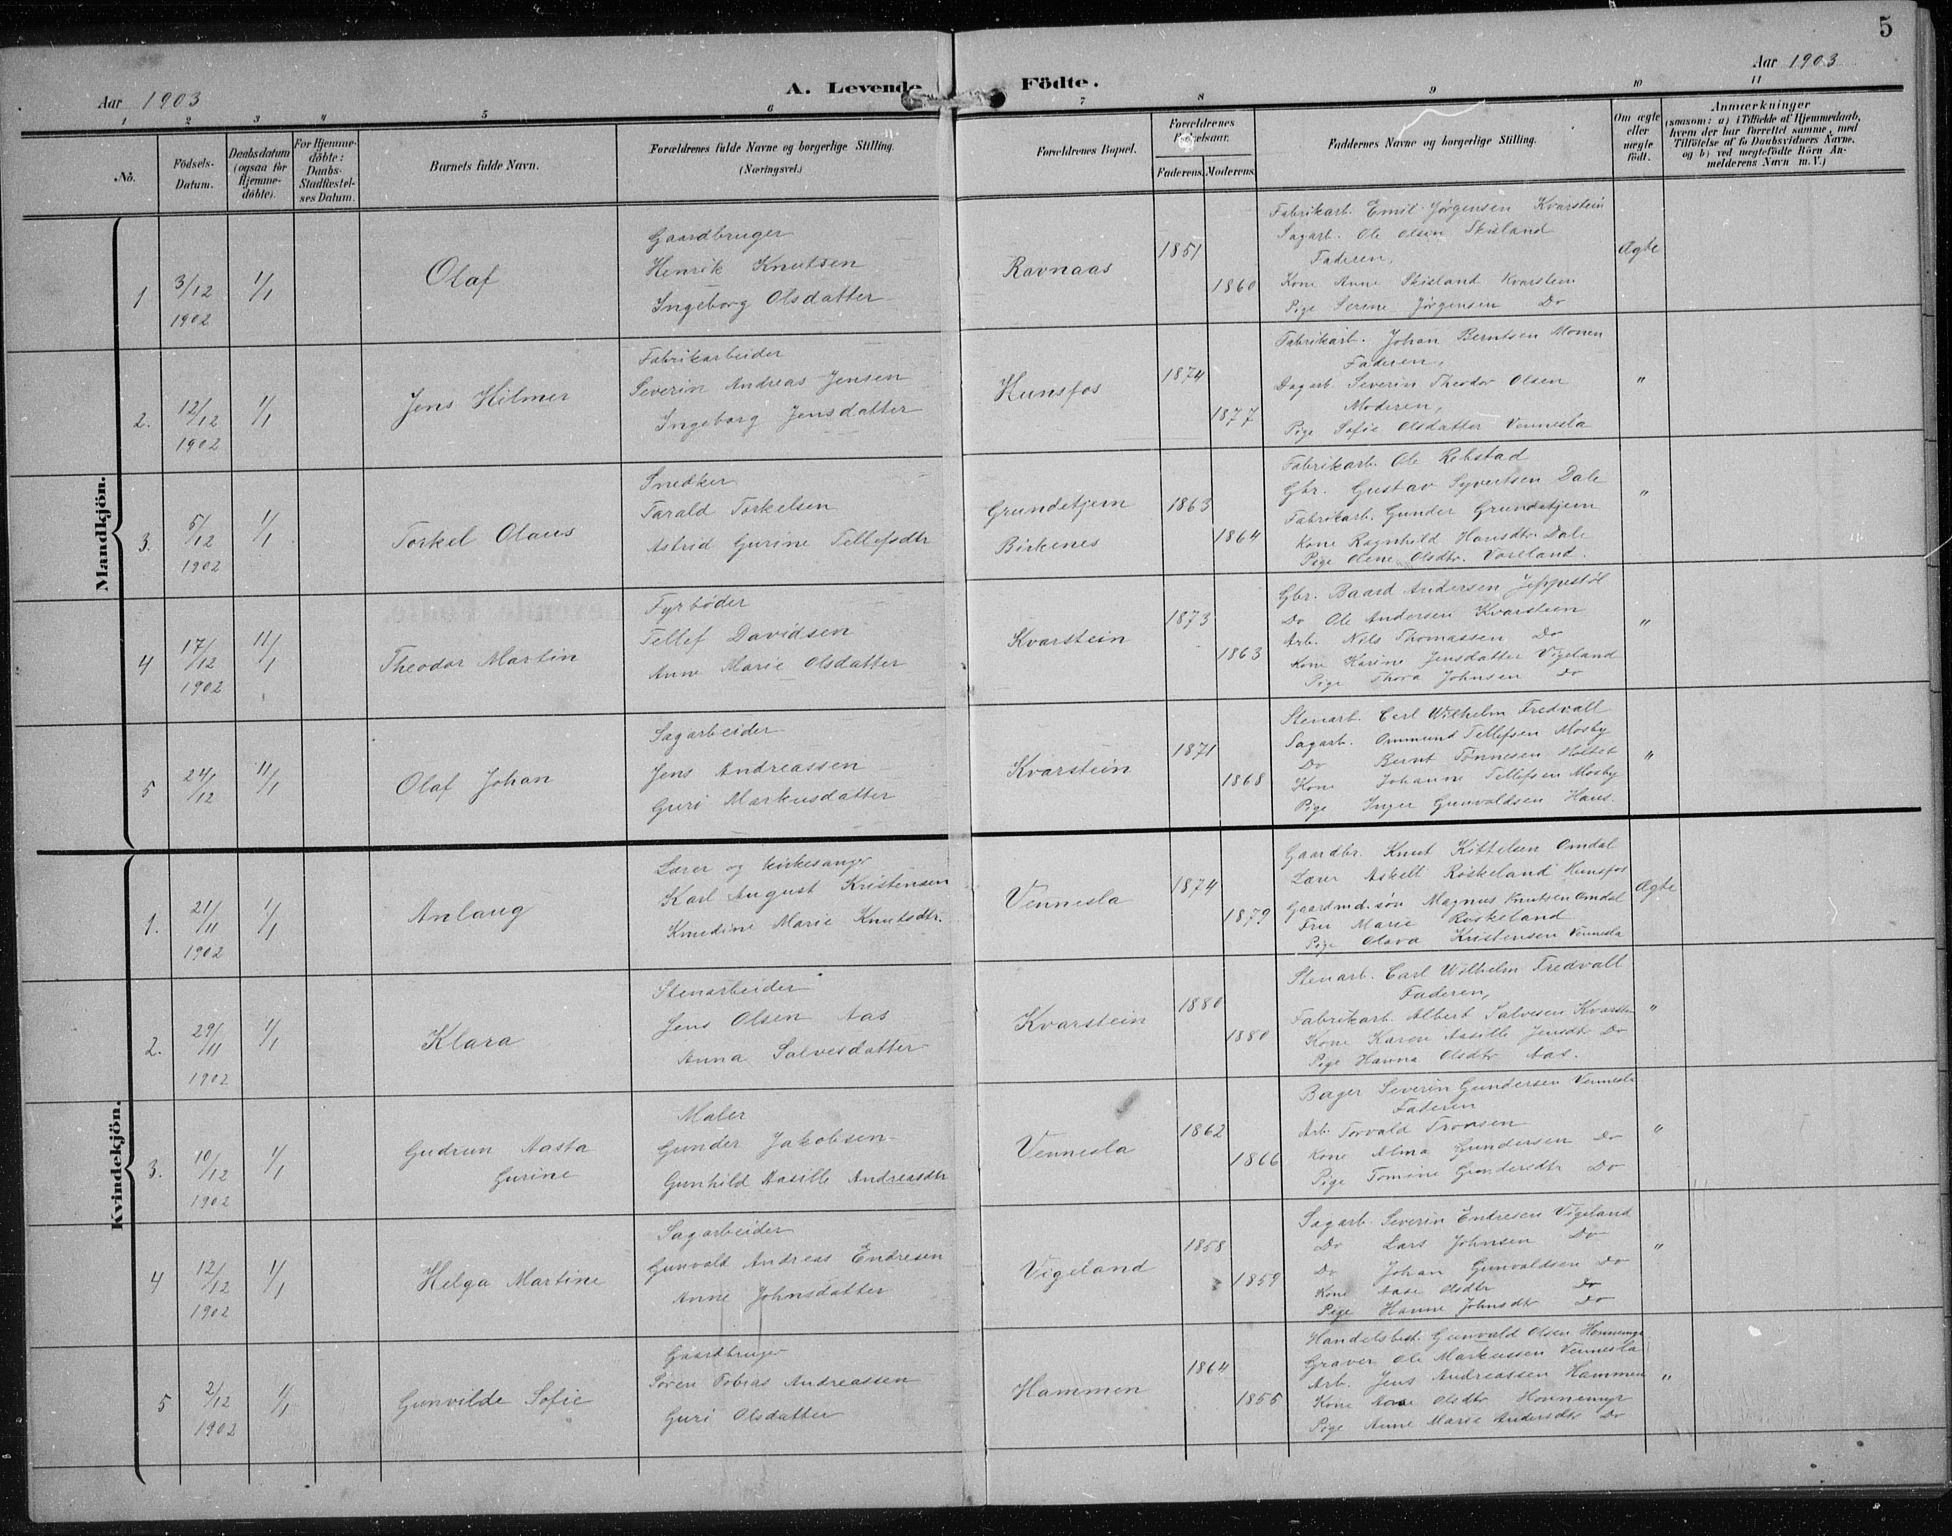 5
Aar 1903
A. Levende Födte.
Aar 1903
1 2 3 4 5 6 7 8 9 10 11
No.
Födsels-Datum.
Daabsdatum (ogsaa for Hjemme-döbte).
For Hjemme-döbte: Daabs-Stadfæstel-ses Datum.
Barnets fulde Navn.
Forældrenes fulde Navne og borgerlige Stilling.
(Næringsvei.)
Forældrenes Bopæl.
Forældrenes Fødselsaar.
Faderens. Moderens.
Faddernes Navne og borgerlige Stilling.
Om ægte eller uægte født.
Anmærkninger
(saasom: a) i Tilfælde af Hjemmedaab,
hvem der har forrettet samme, med
Tilföielse af to Daabsvidners Navne,
og b) ved uægtefödte Börn An-
melderens Navn m. V.)
Mandkjön.
1 3/12 1902 1/1
Olaf
Gaardbruger
Henrik Knutsen
Ingeborg Olsdatter
Ravnaas
1851
1860
Fabrikarb. Emil Jørgensen Kvarstein
Sagarb. Ole Olsen Skisland
Faderen,
Kone Anne Skisland Kvarstein
Pige Serine Jørgensen Do
Ægte
2. 12/12 1902 1/1
Jens Hilmer
Fabrikarbeider
Severin Andreas Jensen
Ingeborg Jensdatter
Hunsfos
1874
1877
Fabrikarb. Johan Berntsen Monen
Faderen,
Dagarb. Severin Theodor Olsen
Moderen,
Pige Sofie Olsdatter Vennesla
"
3. 5/12 1902 1/1
Torkel Olaus
Snedker
Tarald Torkelsen
Astrid Gurine Tellefsdtr
Grundetjern
Birkenes
1863
1864
Fabrikarb. Ole Rebstad
Gbr. Gustav Syvertsen Dale
Fabrikarb. Gunder Grundetjern
Kone Ragnhild Hansdtr. Dale
Pige Olene Olsdtr. Voreland.
"
4 17/12 1902 11/1
Theodor Martin
Fyrbøder
Tellef Davidsen
Anne Marie Olsdatter
Kvarstein
1873
1863
Gbr. Baard Andersen Jeppestøl
Do Ole Andersen Kvarstein
Arb. Nils Thomassen Do
Kone Karine Jensdatter Vigeland
Pige Thora Johnsen Do
"
5 24/12 11/1
Olaf Johan
Sagarbeider
Jens Andreassen
Guri Markusdatter
Kvarstein
1871
1868
Stenarb. Carl Wilhelm Fredvall
Sagarb. Ommund Tellefsen Mosby
Do Bernt Tønnesen Holtet
Kone Johanne Tellefsen Mosby
Pige Inger Gunvaldsen Haus.
"
Kvindekjön.
1. 21/11 1902 1/1
Anlaug
Lærer og kirkesanger
Karl August Kristensen
Knudine Marie Knutsdtr.
Vennesla
1874
1879
Gaardbr. Knut Kittelsen Omdal
Lærer Askell Røskeland Hunsfos
Gaardmd. søn Magnus Knutsen Omdal
Fru Marie Røskeland
Pige Olava Kristensen Vennesla
Ægte
2. 29/11 1902 1/1
Klara
Stenarbeider
Jens Olsen Aas
Anna Salvesdatter
Kvarstein
1880
1880
Stenarb. Carl Wilhelm Fredvall
Faderen,
Fabrikarb. Albert Salvesen Kvarstein
Kone Karen Aasille Jensdtr Do
Pige Hanna Olsdtr Aas.
"
3. 10/12 1902 1/1
Gudrun Aasta
Gurine
Maler
Gunder Jakobsen
Gunhild Aasille Andreasdtr
Vennesla
1862
1866
Bager Severin Gundersen Vennesla
Faderen
Arb. Torvald Tronsen
Kone Alma Gundersen Do
Pige Tomine Gundersdtr Do
"
4 12/12 1902 1/1
Helga Martine
Sagarbeider
Gunvald Andreas Endresen
Anne Johnsdatter
Vigeland
1858
1859
Sagarb. Severin Endresen Vigeland
Do Lars Johnsen Do
Do Johan Gunvaldsen Do
Kone Aase Olsdtr Do
Pige Hanne Johnsdtr Do
"
5 2/12 1902 1/1
Gunvilde Sofie
Gaardbruger
Søren Tobias Andreassen
Guri Olsdatter
Hammen
1864
1855
Handelsbest. Gunvald Olsen Honnemyr
Graver Ole Markussen Vennesla
Arb. Jens Andreassen Hammen
Kone Aase Olsdtr Honnemyr
Pige Anne Marie Andersdtr Do
"